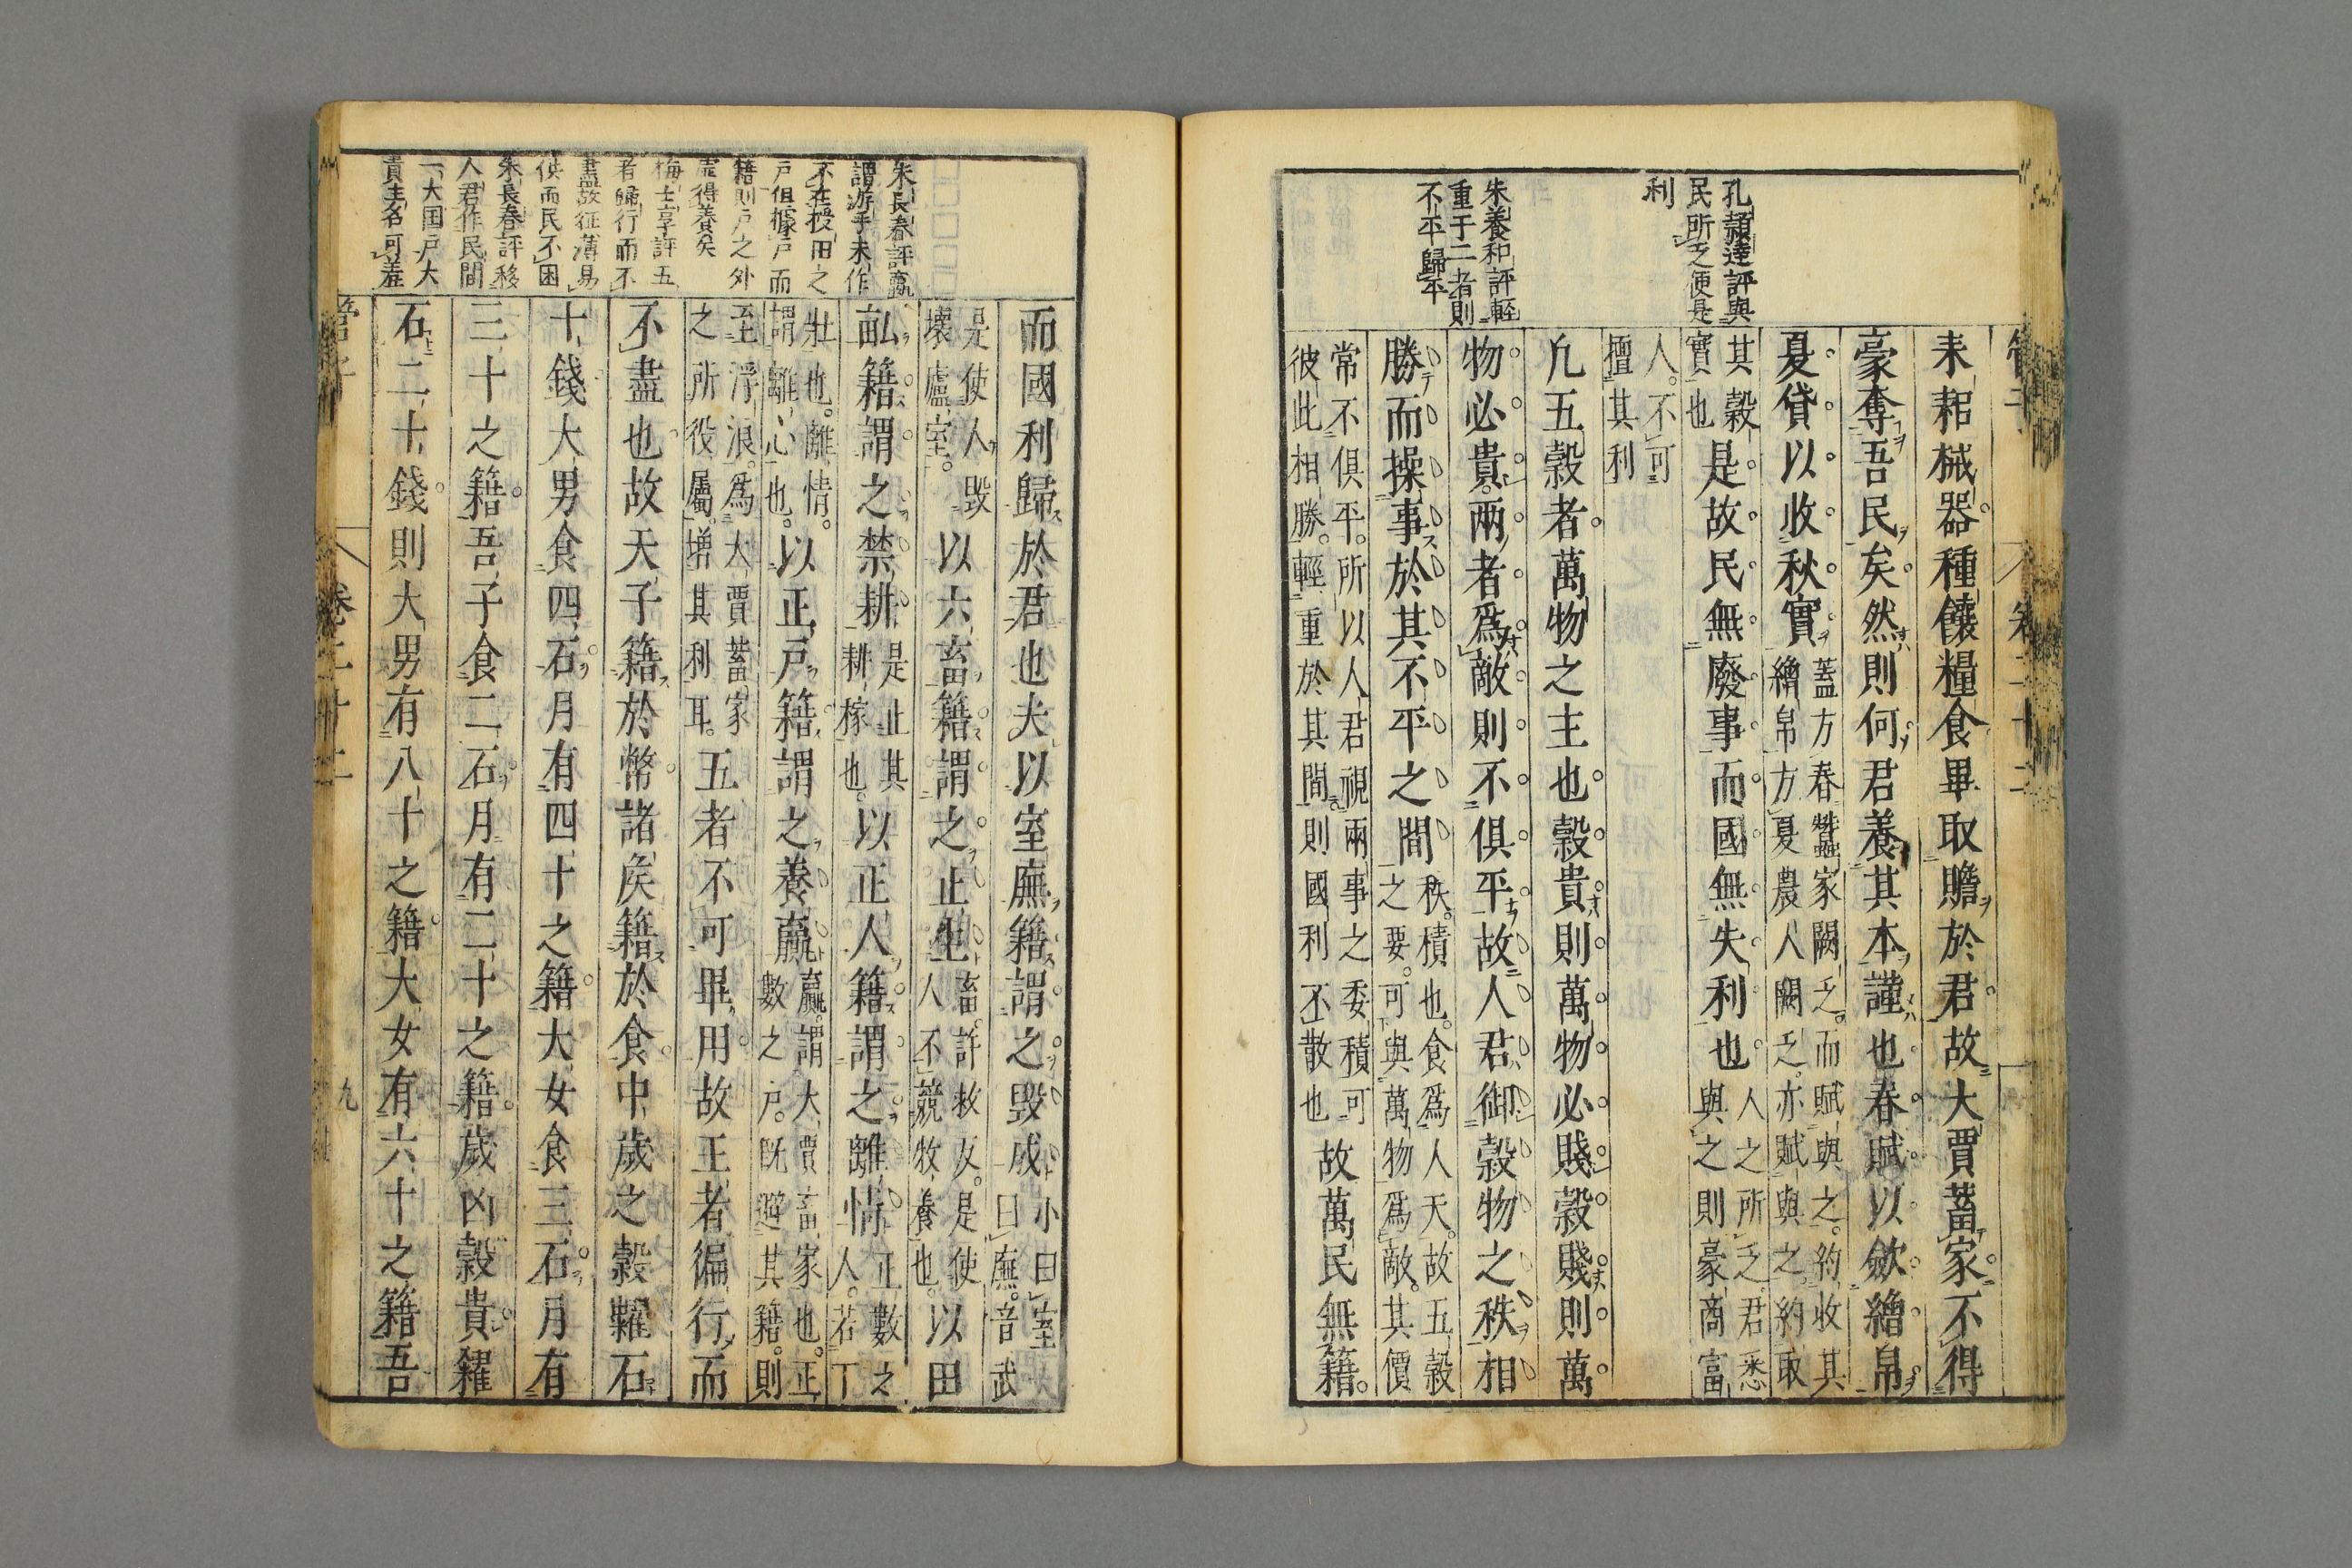 孔頴達評與
民所乏便是
利
朱養和評輕
重于二者則
不平歸平
耒耜械器種饟糧食畢取贍於君故大賈蓄家不得
豪奪吾民矣然則何君養其本謹也春賦以斂繒帛
夏貸以收秋實蓋方春蠶家闕乏而賦與之約收其
繒帛方夏農人闕乏亦賦與之約取
其穀
實也是故民無廢事而國無失利也人之所乏君悉
與之則豪商富
人不可
擅其利
凡五穀者萬物之主也穀貴則萬物必賤穀賤則萬
物必貴兩者爲敵則不俱平故人君御穀物之秩相
勝而操事於其不平之間秩積也食爲人天故五穀
之要可與萬物爲敵其價
常不俱平所以人君視兩事之委積可
彼此相勝輕重於其間則國利不散也故萬民無籍
朱長春評臝
謂游手未作
不在授田之
戶但據戶而
籍則戶之外
虛得養矣
梅士享評五
者歸行而不
盡故征薄易
供而民不困
朱長春評移
人君作民間
一大国戶大
貴主名可羞
而國利歸於君也夫以室廡籍謂之毀成小曰室大
曰廡音武
是使人毀
壞廬室以六畜籍謂之止生畜許救反是使
人不競牧養也以田
畝籍謂之禁耕是止其
耕稼也以正人籍謂之離情正數之
人若丁
壯也離情
謂離心也以正戶籍謂之養臝臝謂大賈畜家也正
數之戶既避其籍則
至浮浪爲大賈蓄家
之所役屬增其利耳五者不可畢用故王者徧行而
不盡也故天子籍於幣諸侯籍於食中歲之穀糶石
十錢大男食四石月有四十之籍大女食三石月有
三十之籍吾子食二石月有二十之籍歲凶穀貴糴
石二十錢則大男有八十之籍大女有六十之籍吾
管子
卷二十二
九